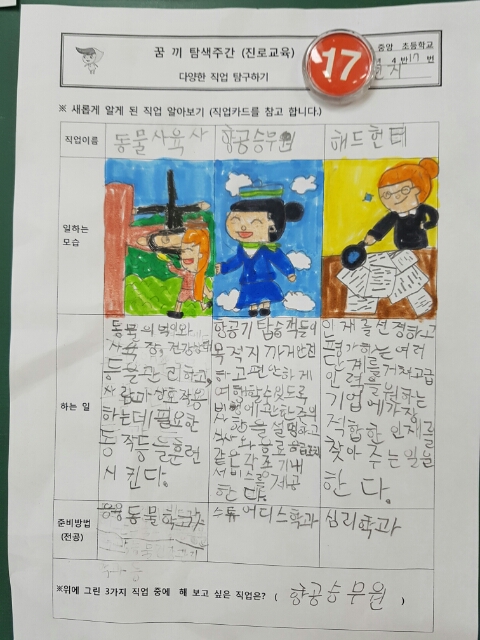 꿈 끼 탐색주간 (진로교육)
다양한 직업 탐구하기
중앙 초등학교
4 반 17 번
17
※ 새롭게 알게 된 직업 알아보기 (직업카드를 참고 합니다.)
직업이름
동물사육사
항공승무원
헤드헌터
일하는
모습
하는 일
동물의
사육장, 건강상태
등을관리하고,
사람과 상호작용
하는데 필요한
동작등을훈련
시킨다.
항공기 탑승객들이
목적지까지안전
하고편안하게
여행할수있도록
비행에관한주의
사항을설명하고
식사와 음료
같은각종기내
서비스를제공
한다.
인재를선정하고
평가하는여러
단계를거쳐고급
인력을원하는
기업에가장
적합한인재를
찾아주는일을
한다.
준비방법
(전공)
동물학과
스튜어디스학과
심리학과
※위에 그린 3가지 직업 중에 해 보고 싶은 직업은? ( 항공승무원 )